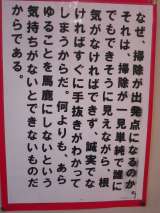 なぜ、掃除が出発点になるのか。
それは、掃除が一見単純で誰に
でもできそうに見えながら、根
気がなければできず、誠実でな
ければすぐに手抜きがわかって
しまうからだ。何よりも、あら
ゆることを馬鹿にしないという
気持ちがないとできないものだ
からである。